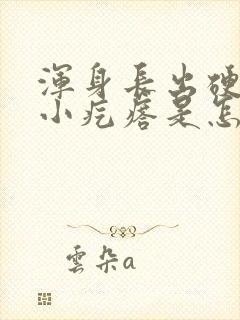 渾身長出硬
小疙瘩是怎
雲朵a